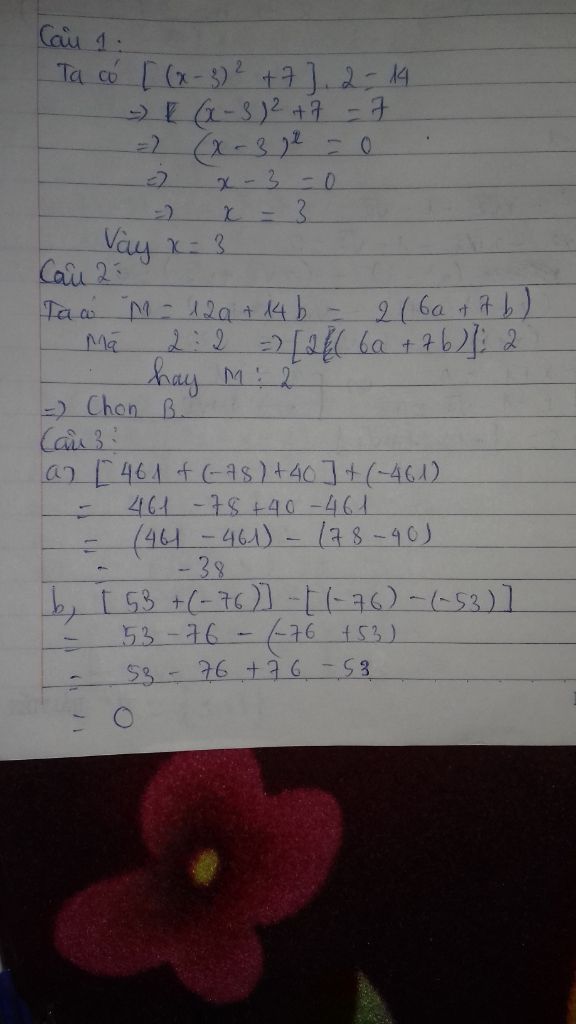 Câu 1:
Ta có [(x-3)² +7]. 2 = 14
=> (x-3)² +7 = 7
=> (x-3)² = 0
=> x-3 = 0
=> x = 3
Vậy x = 3
Câu 2:
Ta có M = 12a + 14b = 2(6a + 7b)
Mà 2 ⋮ 2 => [2(6a + 7b)] ⋮ 2
hay M ⋮ 2
=> Chọn B.
Câu 3:
a) [461 + (-78) + 40] + (-461)
= 461 - 78 + 40 - 461
= (461 - 461) - (78 - 40)
= -38
b, [53 + (-76)] - [(-76) - (-53)]
= 53 - 76 - (-76 + 53)
= 53 - 76 + 76 - 53
= 0